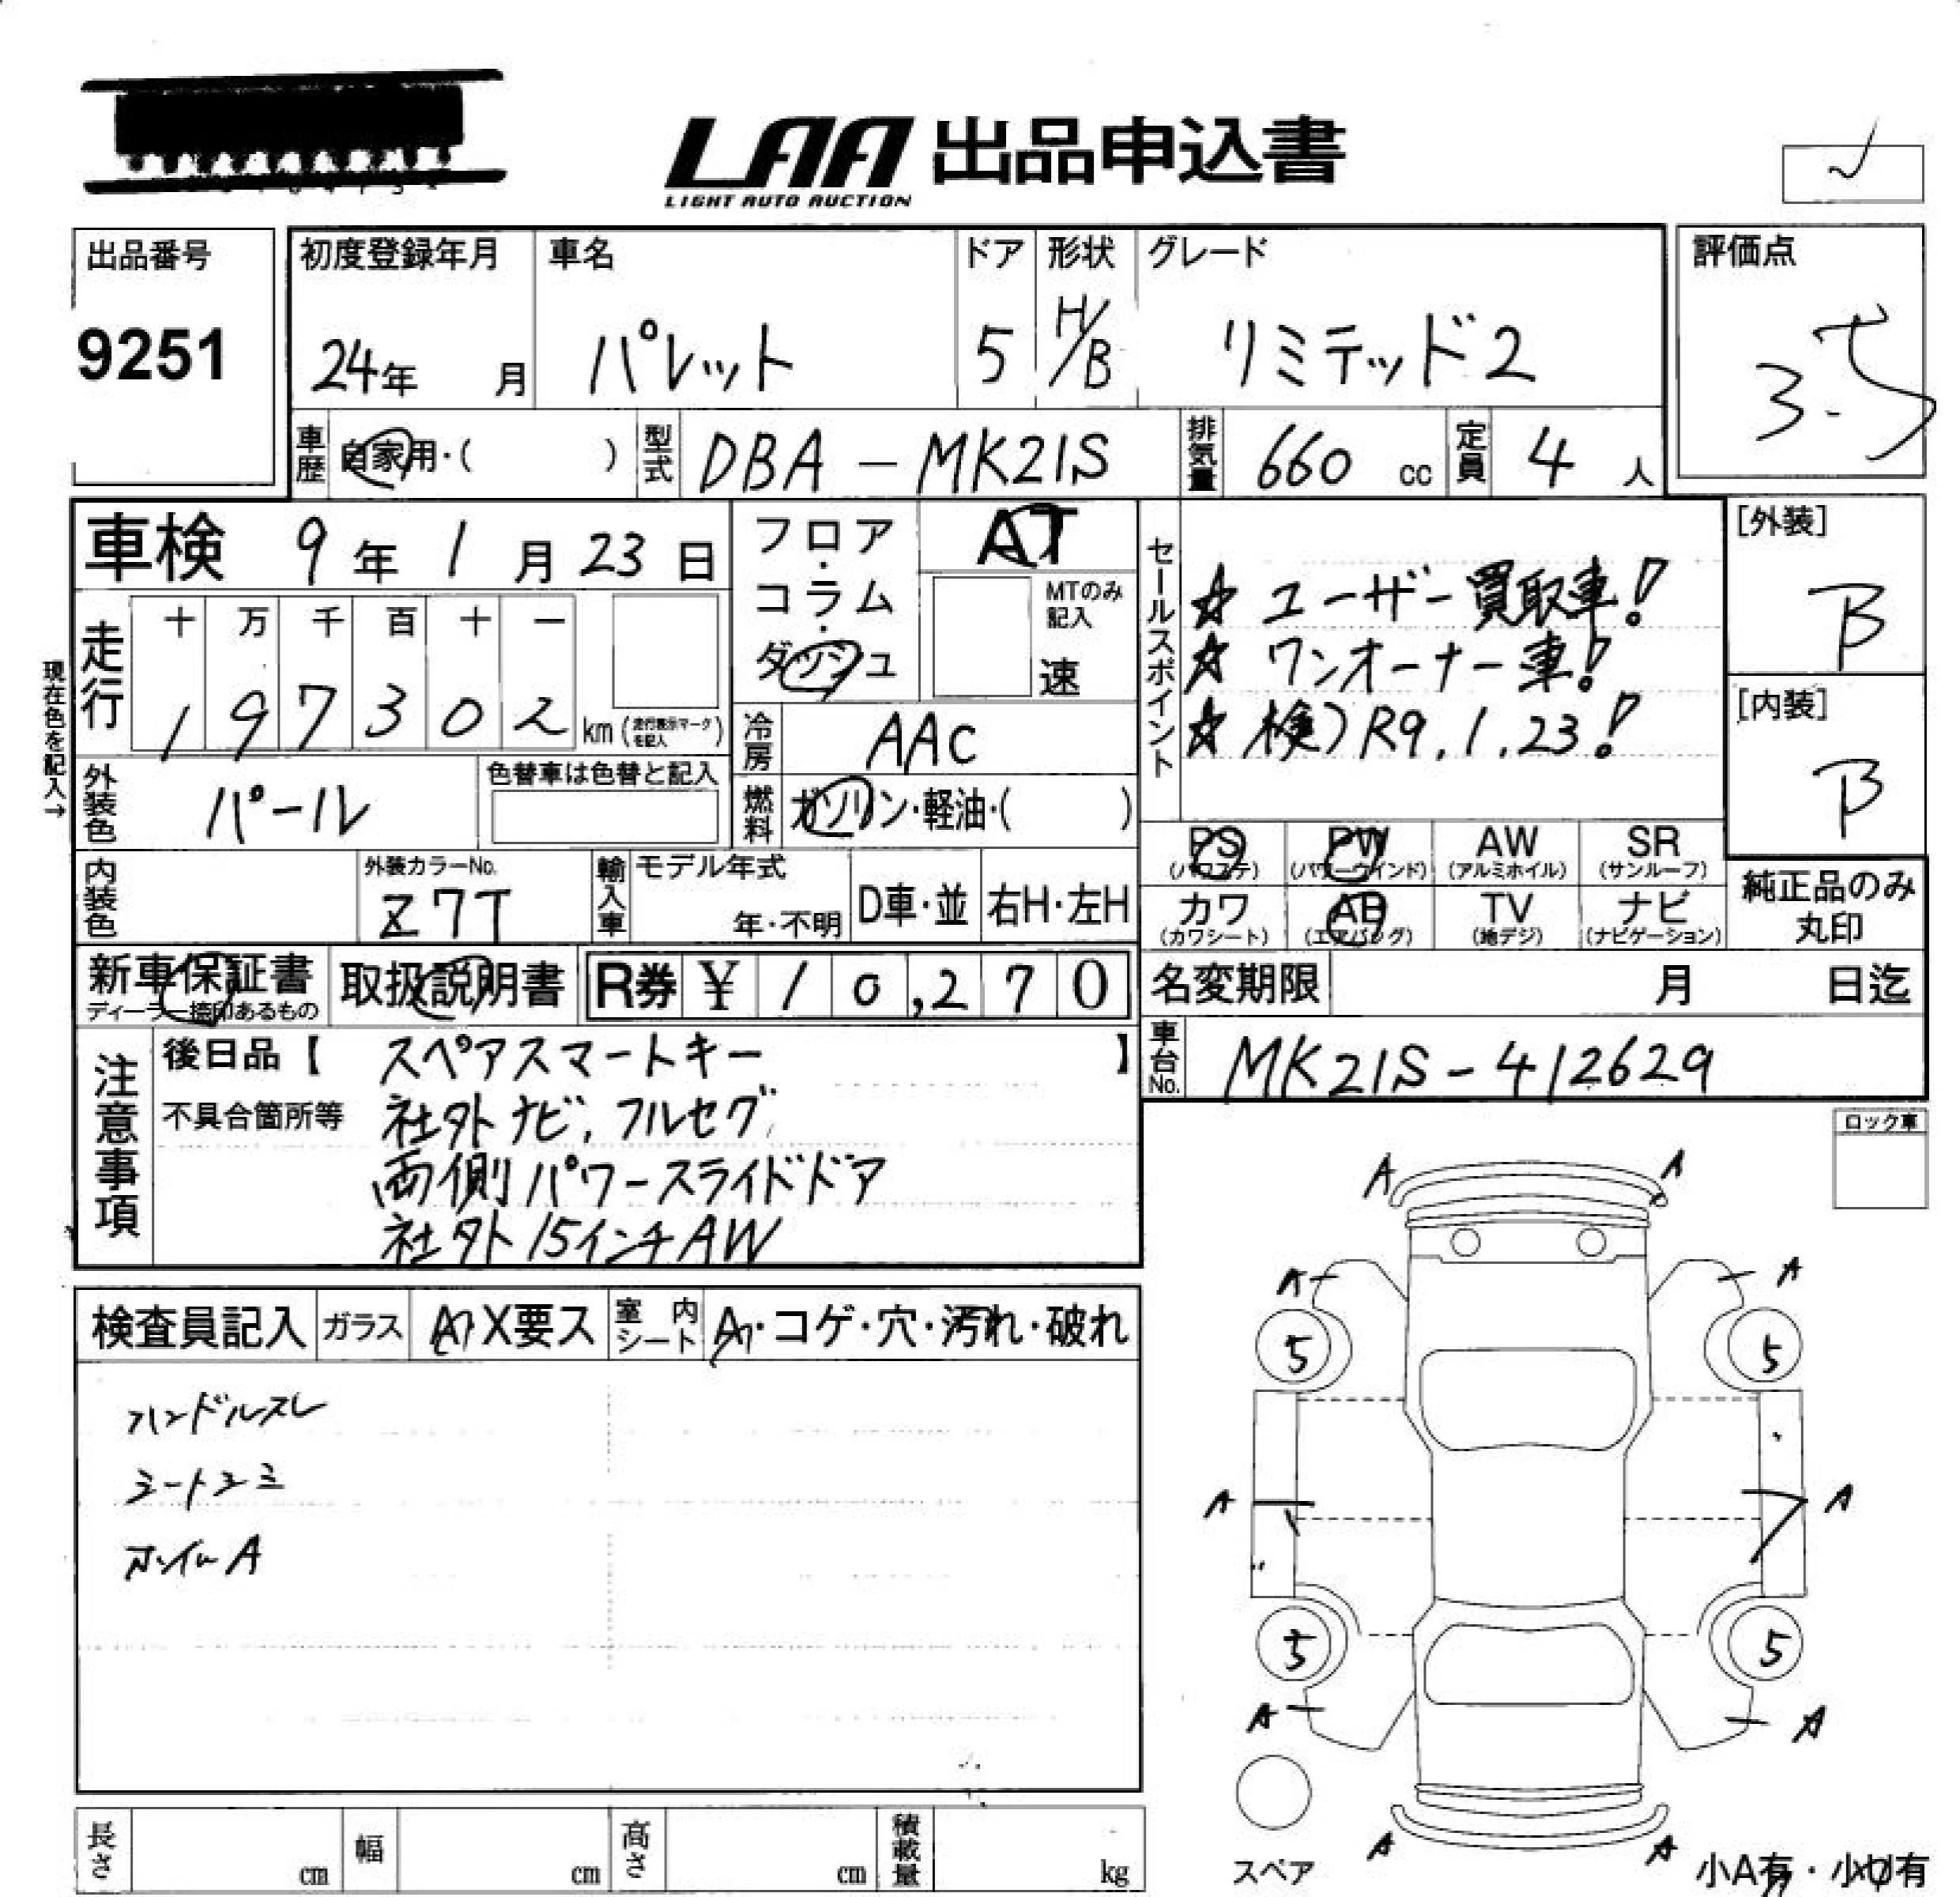 LAA 出品申込書
LIGHT AUTO AUCTION
出品番号
9251
初度登録年月 車名 ドア 形状 グレード 評価点
24年 月 パレット 5 H/B リミテッド2 3.5
車歴 自家用・( ) 型式 DBA-MK21S 排気量 660 cc 定員 4 人
車検 9年 1月 23日
フロア・コラム・ダッシュ
AT
MTのみ記入
速
セールスポイント
☆ ユーザー買取車!
☆ ワンオーナー車!
☆ 検)R9.1.23!
[外装]
B
[内装]
B
現在色を記入→
走行 十 万 千 百 十 一
1 9 7 3 0 2 km (走行表示マークを記入)
冷房 AAC
外装色 パール 色替車は色替と記入
燃料 ガソリン・軽油・( )
内装色 外装カラーNo. Z7T
輸入車 モデル年式 年・不明 D車・並 右H・左H
PS (パワステ) PW (パワーウインド) AW (アルミホイル) SR (サンルーフ)
カワ (カワシート) AB (エアバッグ) TV (地デジ) ナビ (ナビゲーション)
純正品のみ丸印
新車保証書 取扱説明書 R券 ¥ 10,270
ディーラー捺印あるもの
名変期限 月 日迄
車台No. MK21S-412629
注意事項
後日品【 スペアスマートキー 】
不具合箇所等 社外ナビ,フルセグ
両側パワースライドドア
社外15インチAW
ロック車
検査員記入 ガラス A・X要ス 室内シート A・コゲ・穴・汚れ・破れ
ハンドルスレ
シートシミ
ホイルA
A A
A A
5 5
A A
5 5
A A
A A
スペア
小A有・小U有
長さ cm 幅 cm 高さ cm 積載量 kg